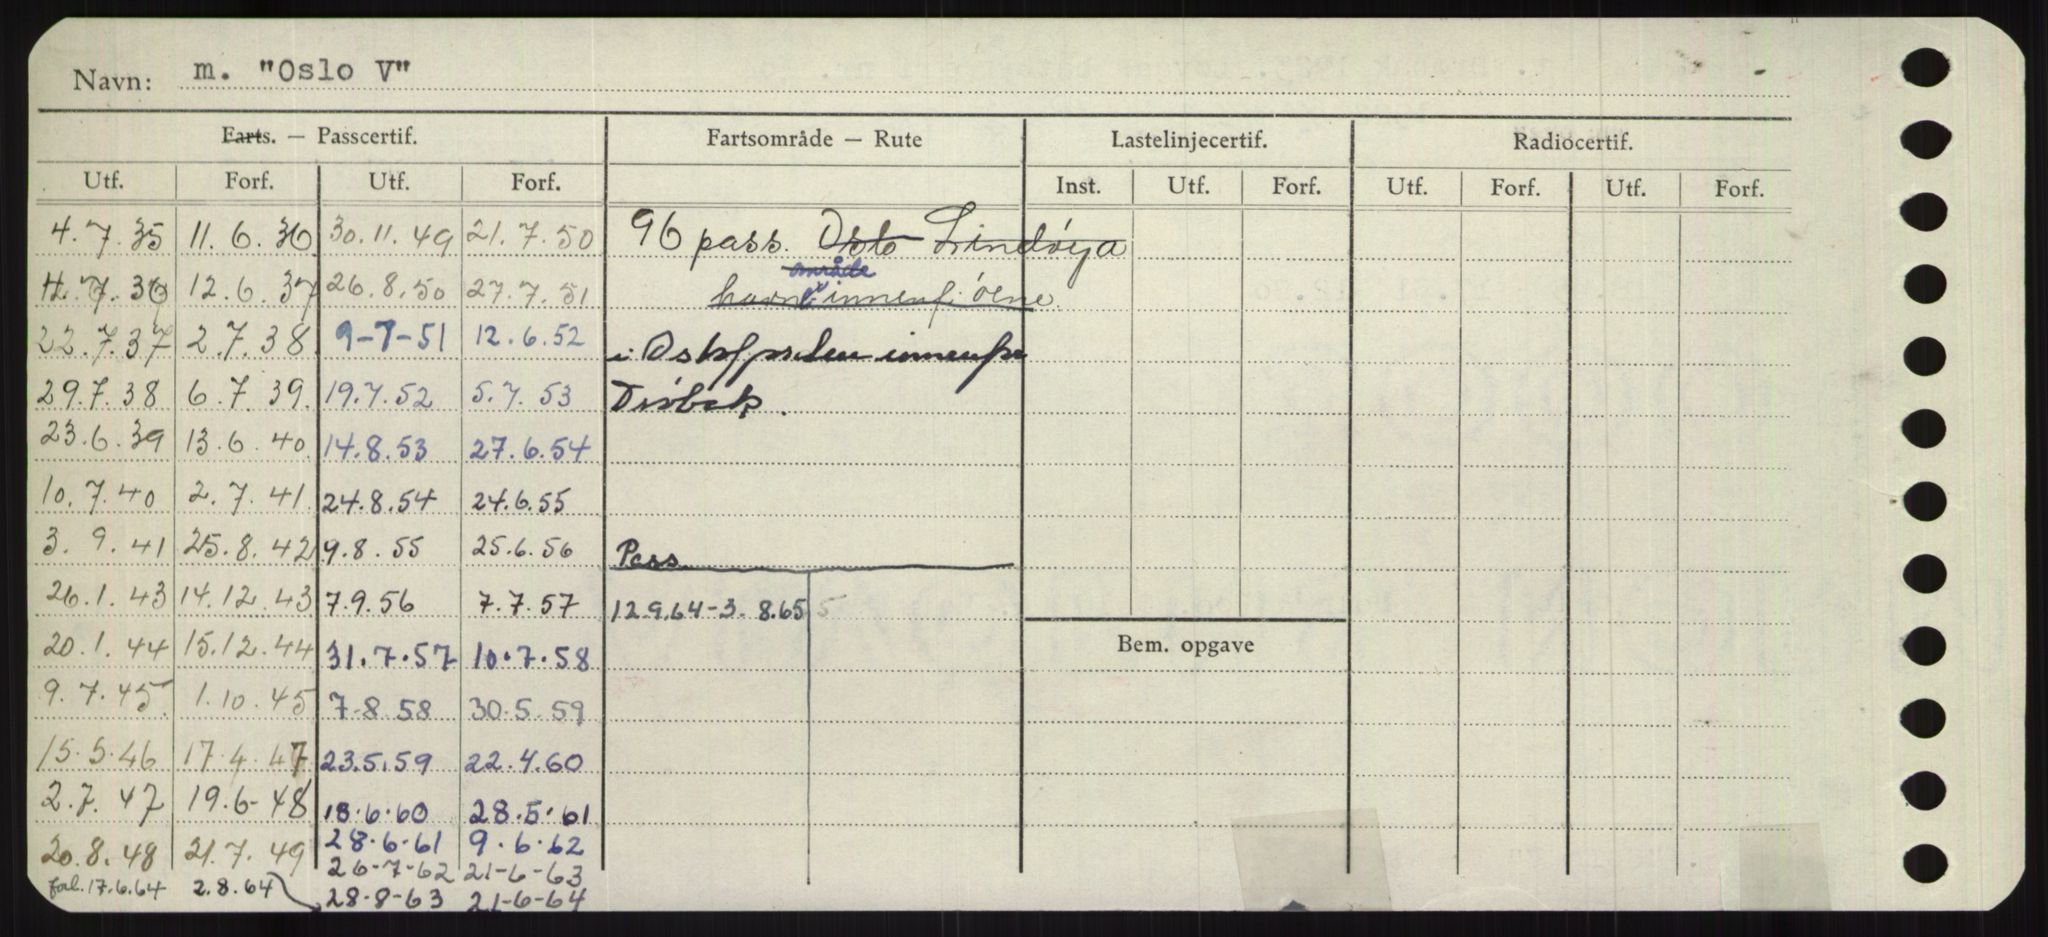 Navn: m. "Oslo V"
Farts. — Passcertif. Fartsområde — Rute Lastelinjecertif. Radiocertif.
Utf. Forf. Utf. Forf. Inst. Utf. Forf. Utf. Forf. Utf. Forf.
4. 7. 35 11. 6. 36 30. 11. 49 21. 7. 50 96 pass. Oslo Lindøya
område
7. 36 12. 6. 37 26. 8. 50 27. 7. 51 innenf. øene
22. 7. 37 2. 7. 38 9-7-51 12. 6. 52 i Oslofjorden innenfor
29. 7. 38 6. 7. 39 19. 7. 52 5. 7. 53 Drøbak.
23. 6. 39 13. 6. 40 14. 8. 53 27. 6. 54
10. 7. 40 2. 7. 41 24. 8. 54 24. 6. 55
3. 9. 41 25. 8. 42 9. 8. 55 25. 6. 56 Pass
26. 1. 43 14. 12. 43 7. 9. 56 7. 7. 57 12.9.64-3. 8.65 5
20. 1. 44 15. 12. 44 31. 7. 57 10. 7. 58 Bem. opgave
9. 7. 45 1. 10. 45 7-8 58 30. 5. 59
15. 5. 46 17. 4. 47 23.5.59 22. 4. 60
2. 7. 47 19. 6- 48 18. 6. 60 28. 5. 61
20. 8. 48 21. 7. 49 28-6-61 9. 6. 62
26-7-62 21-6-63
forl. 17.6.64 2.8.64 28-8-63 21-6-64